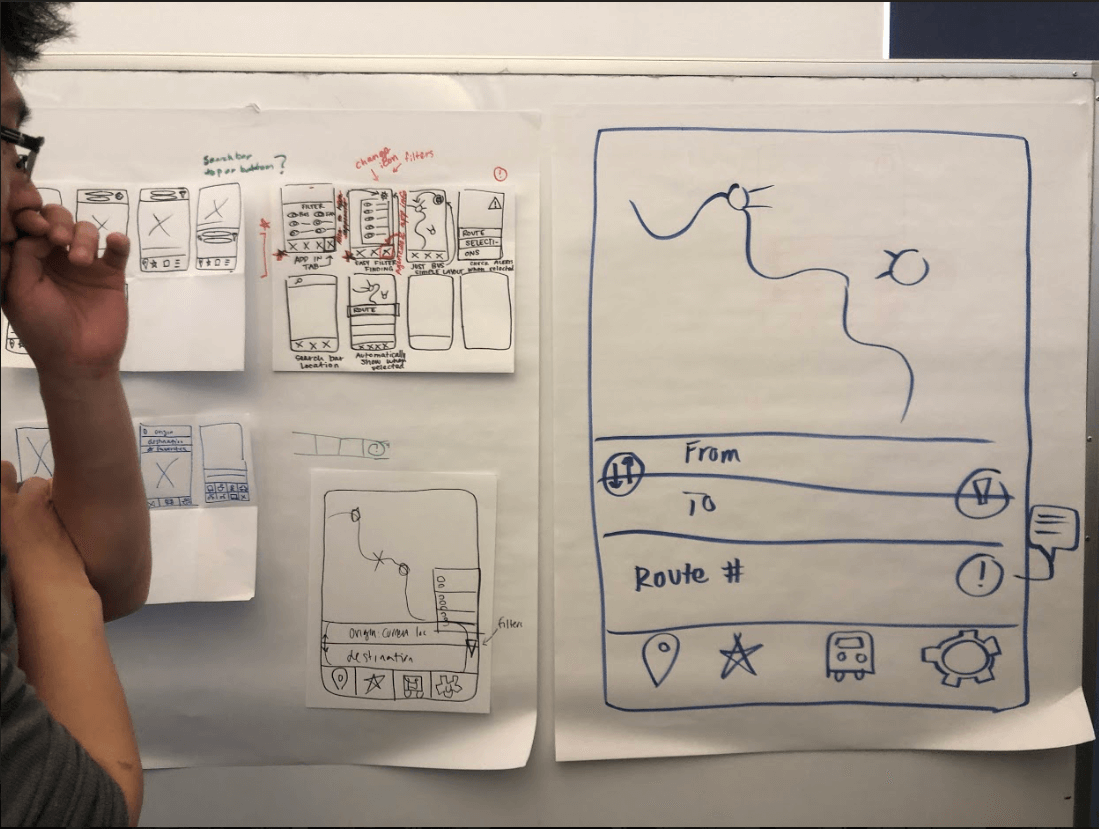 Search bar
top or bottom?
change
icon filters
!
FILTER
APP IN
TAB
EASY FILTER
FINDING
JUST BUS
SIMPLE LAYOUT
ROUTE
SELECTI-
ONS
when selected
Search bar
Location
ROUTE
Automatically
Show when
selected
Origin
destination
!
Origin: Current loc
destination
filters
From
To
Route #
!